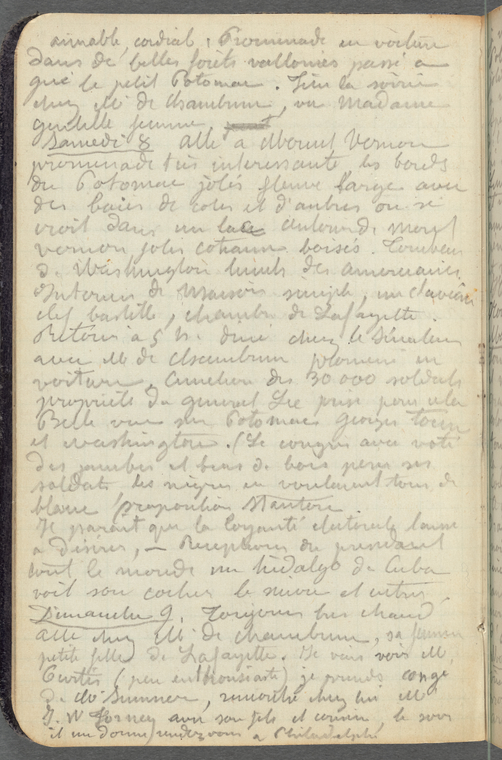 aimable, cordial, Promenade en voiture
dans de belles forêts vallonnées passé a
gué le petit Potomac. Fini la soirée
chez Mr de Chambrun, vu Madame
quelle femme
Samedi 8 allé a Mount Vernon
promenade très interessante les bords
du Potomac jolis fleuve large avec
des baies de cotes et d'autres on se
croit dans un lac autour de Mount
Vernon jolis coteaux boisés. Tombeau
de Washington lunch des americains
Interieur de maison simple, un clavecin
clef bastille, chambre de Lafayette.
Retour a 5 h. diné chez le Sénateur
avec Mr de Chambrun promené en
voiture, Cimetière des 30 000 soldats
propriété du general Lee prise pour cela
Belle vue sur Potomac Georges town
et Washington. (Le congrès avait voté
des jambes et bras de bois pour ses
soldats les nègres en voulurent tous de
blanc proposition
Il parait que la loyauté electorale laisse
a désirer, — Receptions du president
tout le monde un hidalgo de Cuba
voit son cocher le suivre et entrer
Dimanche 9. Toujours très chaud
allé chez Mr de Chambrun, sa femme
petite fille de Lafayette. Je vais voir Mr
Curtis (peu enthousiaste) je prends congé
de Mr Sumner, rencontré chez lui Mr
J. W Forney avec son fils et cousin, le soir
il me donne rendez vous a Philadelphie